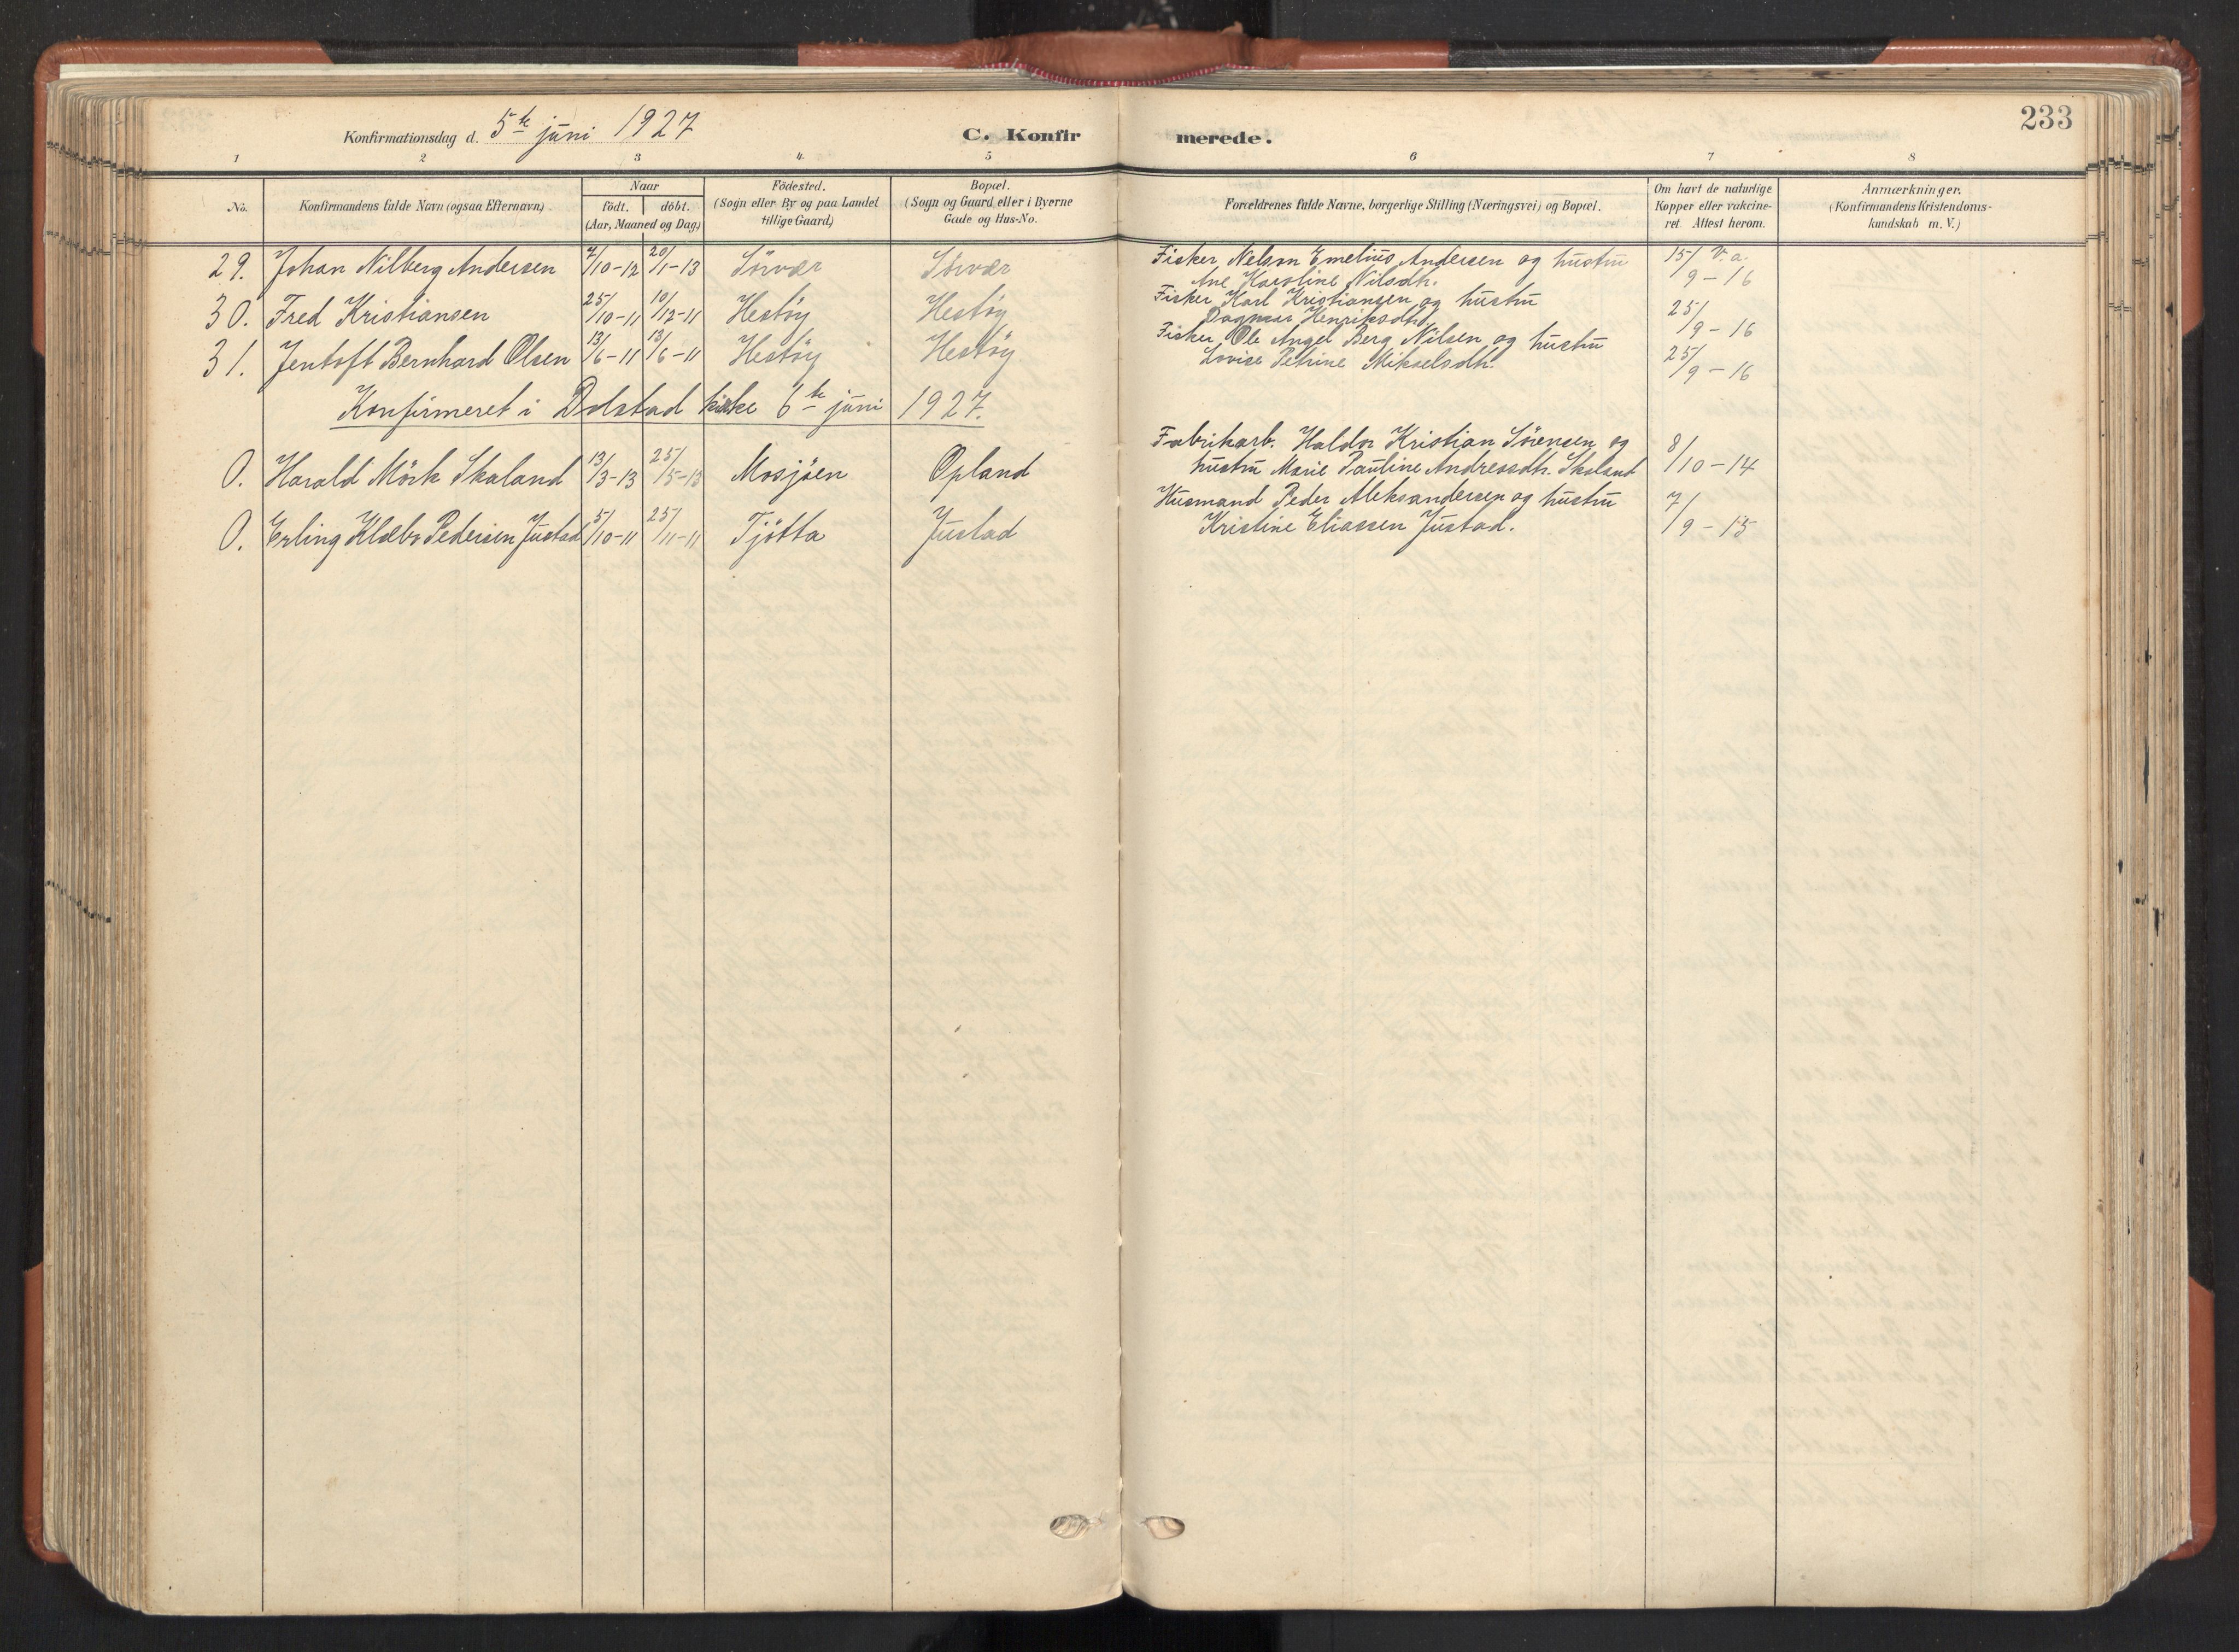 233
Konfirmationsdag d. 5te juni 1927
C. Konfirmerede.
1 2 3 4 5 6 7 8
No.
Konfirmandens fulde Navn (ogsaa Efternavn).
Naar
födt. döbt.
(Aar, Maaned og Dag)
Födested.
(Sogn eller By og paa Landet
tillige Gaard)
Bopæl.
(Sogn og Gaard eller i Byerne
Gade og Hus-No.
Forældrenes fulde Navne, borgerlige Stilling (Næringsvei) og Bopæl.
Om havt de naturlige
Kopper eller vakcine-
ret. Attest herom.
Anmærkninger.
(Konfirmandens Kristendoms-
kundskab m. V.)
29. Johan Nilberg Andersen 7/10-12 20/1-13 Sörvær Sörvær Fisker Nelson Emelius Andersen og hustru 15/9-16 V. a.
Ane Karoline Nilsdtr.
30. Fred Kristiansen 25/10-11 10/12-11 Hestöy Hestöy Fisker Karl Kristiansen og hustru 25/9-16
Dagmar Henriksdtr.
31. Jentoft Bernhard Olsen 13/6-11 13/6-11 Hestöy Hestöy Fisker Ole Angel Berg Nilsen og hustru 25/9-16
Lovise Petrine Mikselsdtr.
Konfirmeret i Dolstad kirke 6te juni 1927.
0. Harald Mörk Skaland 13/3-13 25/5-13 Mosjöen Opland Fabrikarb. Haldor Kristian Sörensen og 8/10-14
hustru Marie Pauline Andreasdtr. Skaland
0. Erling Klæbo Pedersen Justad 5/10-11 25/11-11 Tjötta Justad Husmand Peder Aleksandersen og hustru 7/9-15
Kristine Eliassen Justad.